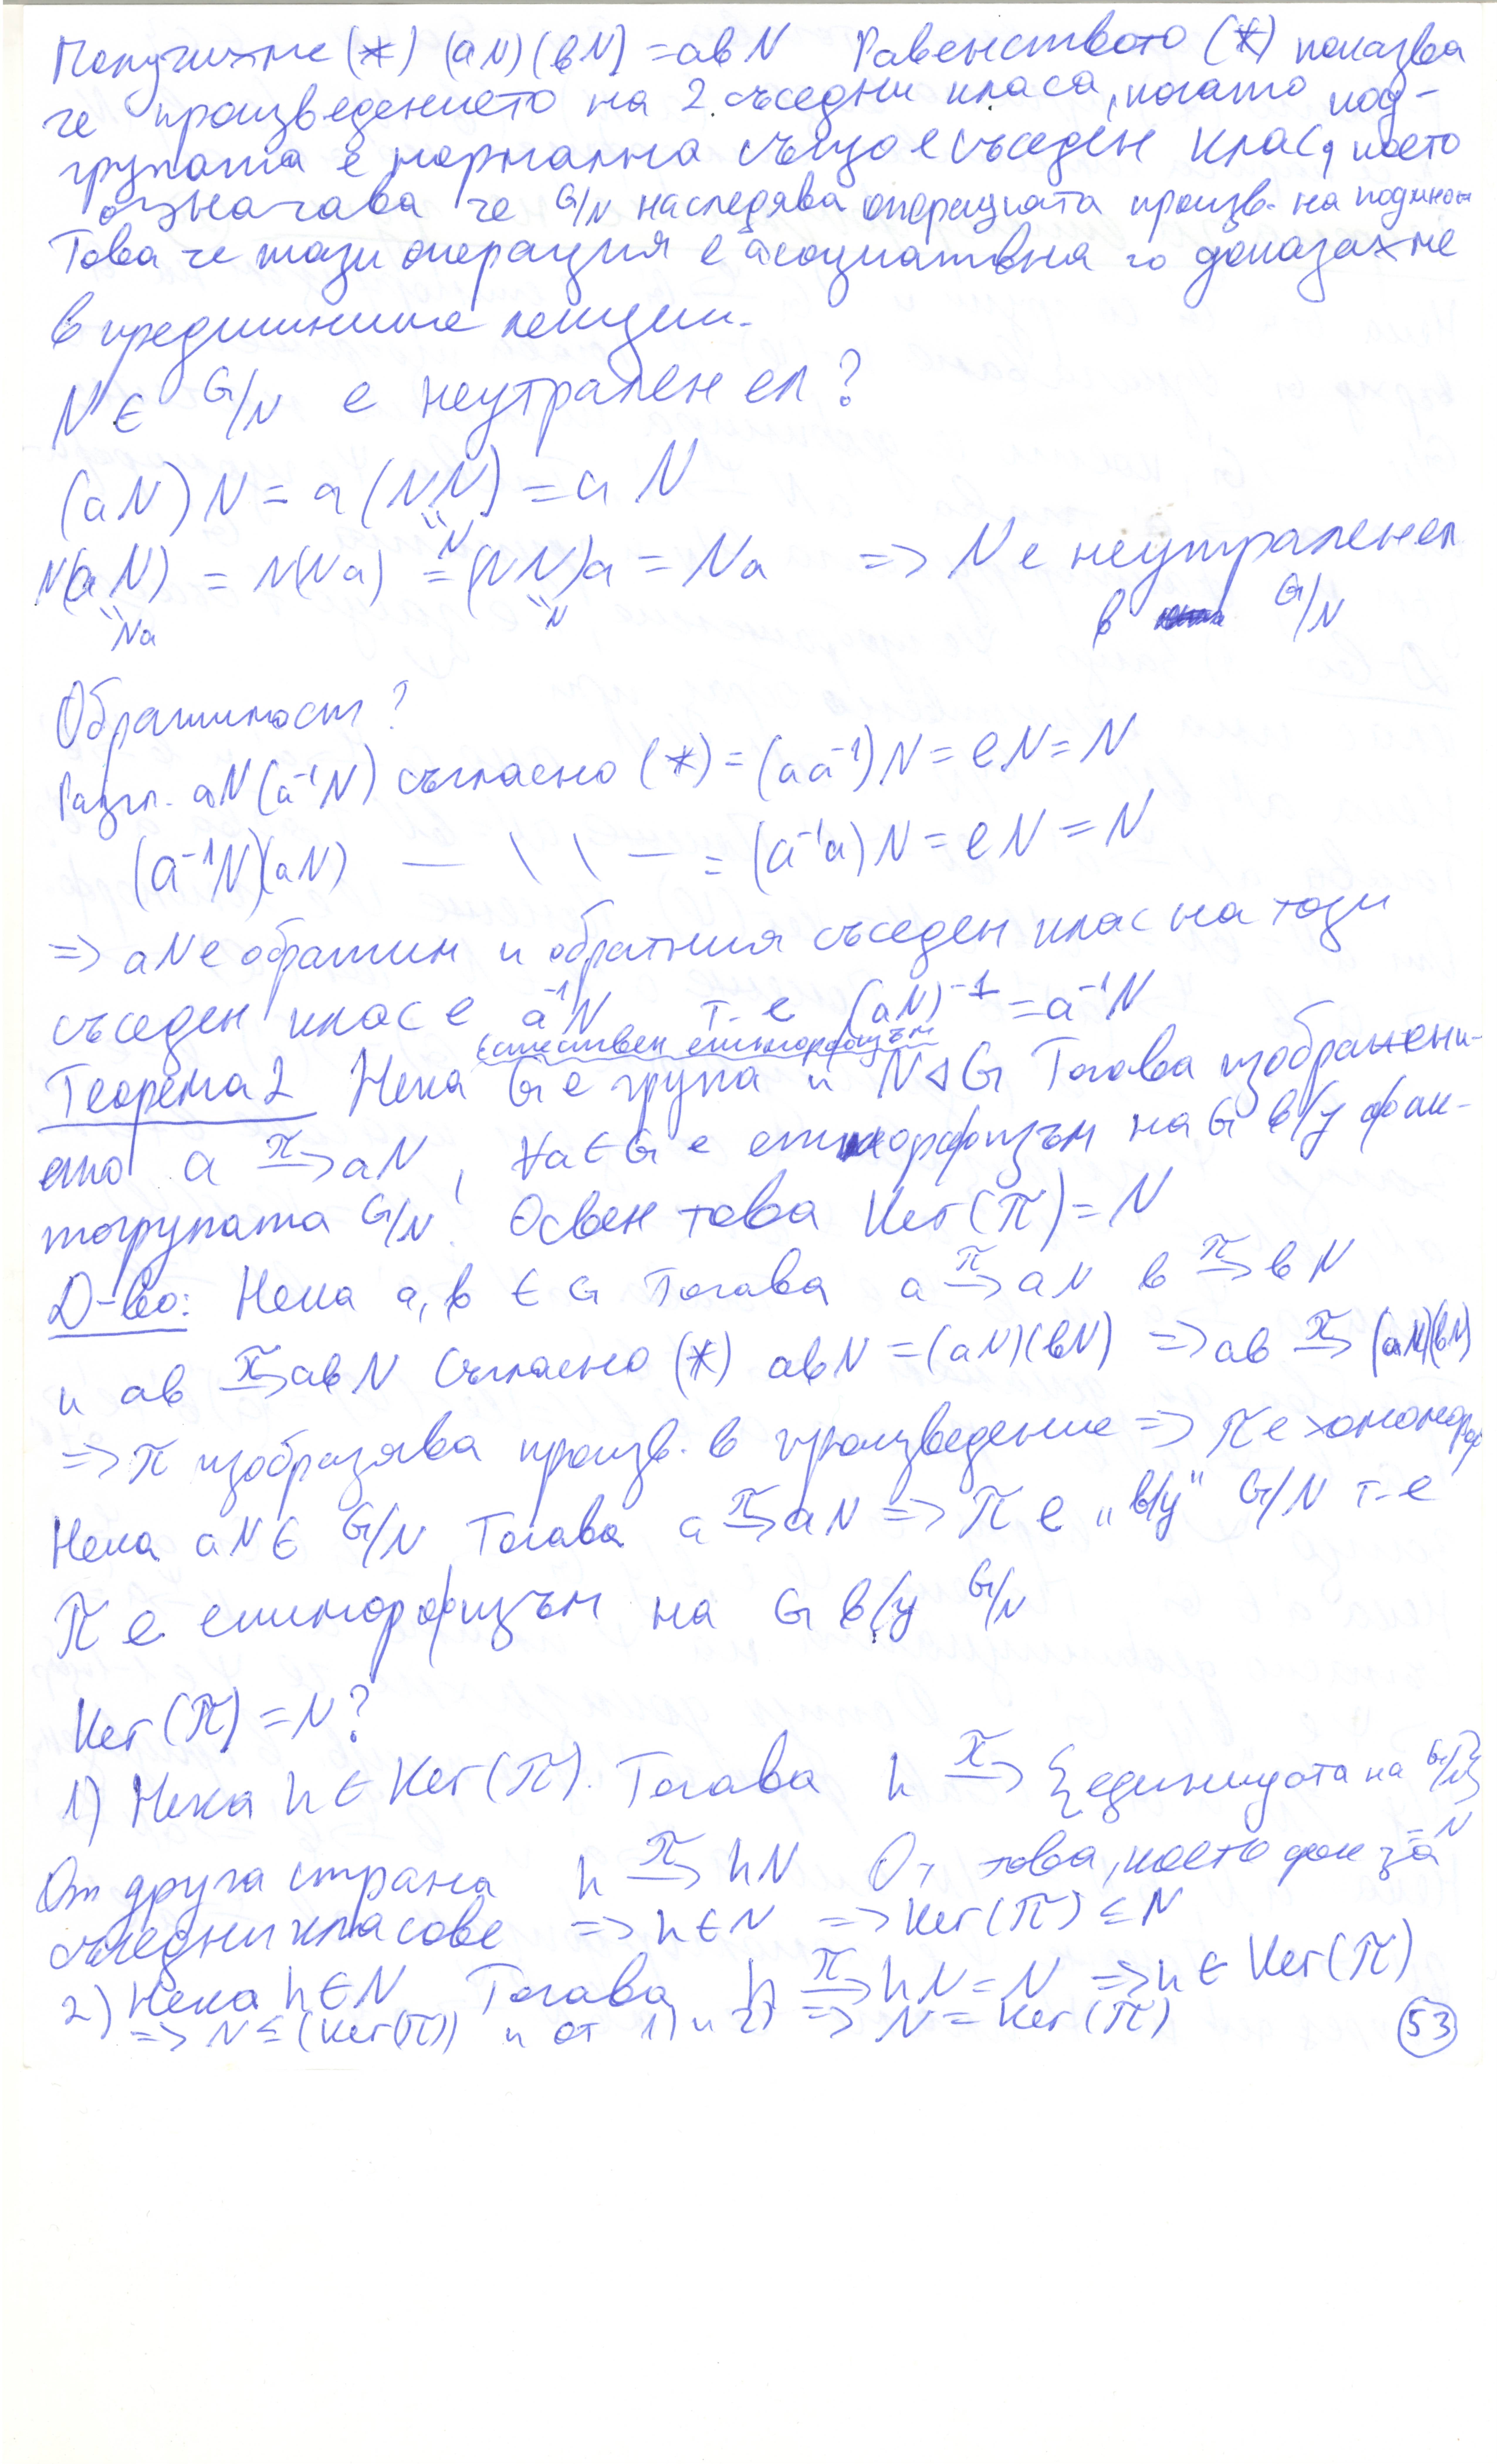 Получихме (*) (aN)(bN) = abN Равенството (*) показва
че произведението на 2 съседни класа, когато под-
групата е нормална също е съседен клас, което
означава че G/N наследява операцията произв. на подмнож
Това че тази операция е асоциативна го доказахме
в предишните лекции.
N ∈ G/N е неутрален ел?
(aN)N = a(NN) = aN
N
N(aN) = N(Na) = (NN)a = Na => N е неутрален ел
Na N в G/N
Обратимост?
Разгл. aN(a⁻¹N) съгласно (*) = (aa⁻¹)N = eN = N
(a⁻¹N)(aN) — \ \ — = (a⁻¹a)N = eN = N
=> aN е обратим и обратния съседен клас на този
съседен клас е a⁻¹N т-е (aN)⁻¹ = a⁻¹N
естествен епиморфизъм
Теорема 2 Нека G е група и N ⊲ G Тогава изображени-
ето a π→ aN, ∀a ∈ G е епиморфизъм на G в/у фак-
торгрупата G/N! Освен това Ker(π) = N
Д-во: Нека a, b ∈ G Тогава a π→ aN b π→ bN
и ab π→ abN Съгласно (*) abN = (aN)(bN) => ab π→ (aN)(bN)
=> π изобразява произв. в произведение => π е хомоморф
Нека aN ∈ G/N Тогава a π→ aN => π е "в/у" G/N т-е
π е епиморфизъм на G в/у G/N
Ker(π) = N?
1) Нека h ∈ Ker(π). Тогава h π→ {единицата на G/N}
= N
От друга страна h π→ hN От това, което док за
съседни класове => h ∈ N => Ker(π) ≤ N
2) Нека h ∈ N Тогава h π→ hN = N => h ∈ Ker(π)
=> N ≤ (Ker(π)) и от 1) и 2) => N = Ker(π)
53